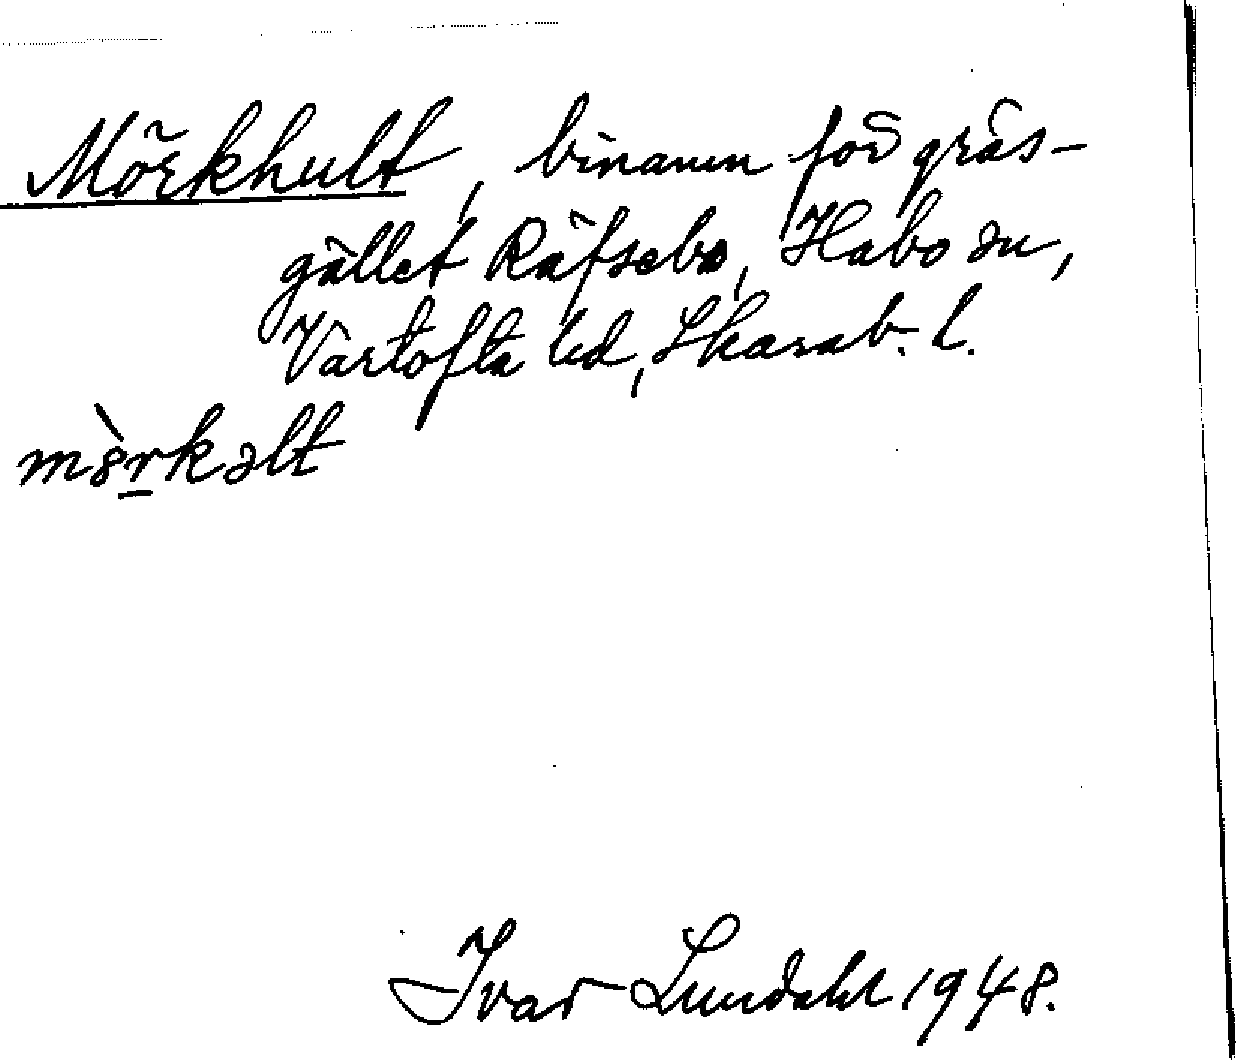 Mörkhult, binamn för gräs-
gället Räfsebo, Habo sn,
Vartofta hd, Skarab. l.
mörkəlt
Ivar Lundahl 1948.